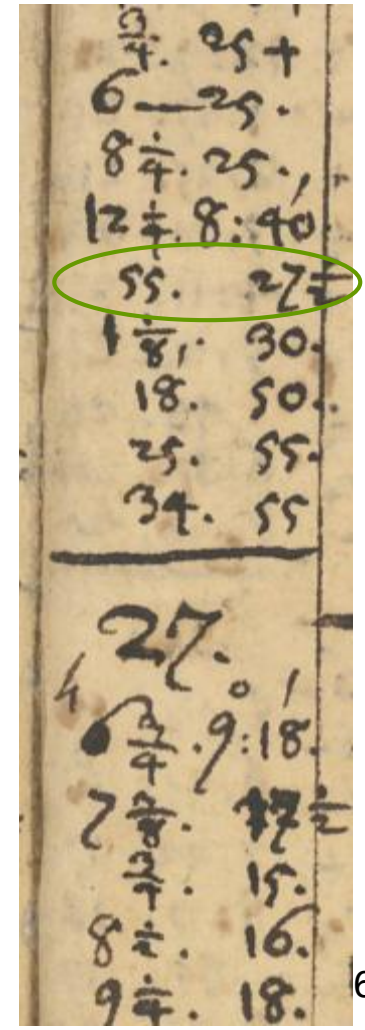 3/4. 25 +
6 — 25.
8 1/4. 25.
12 1/4. 8: 40.
55. 27 1/2
1 1/8, 30.
18. 50.
25. 55.
34. 55
27.
h o /
6 3/4 . 9:18.
7 3/8. 17 1/2
3/4. 15.
8 1/2. 16.
9 1/4. 18.
6